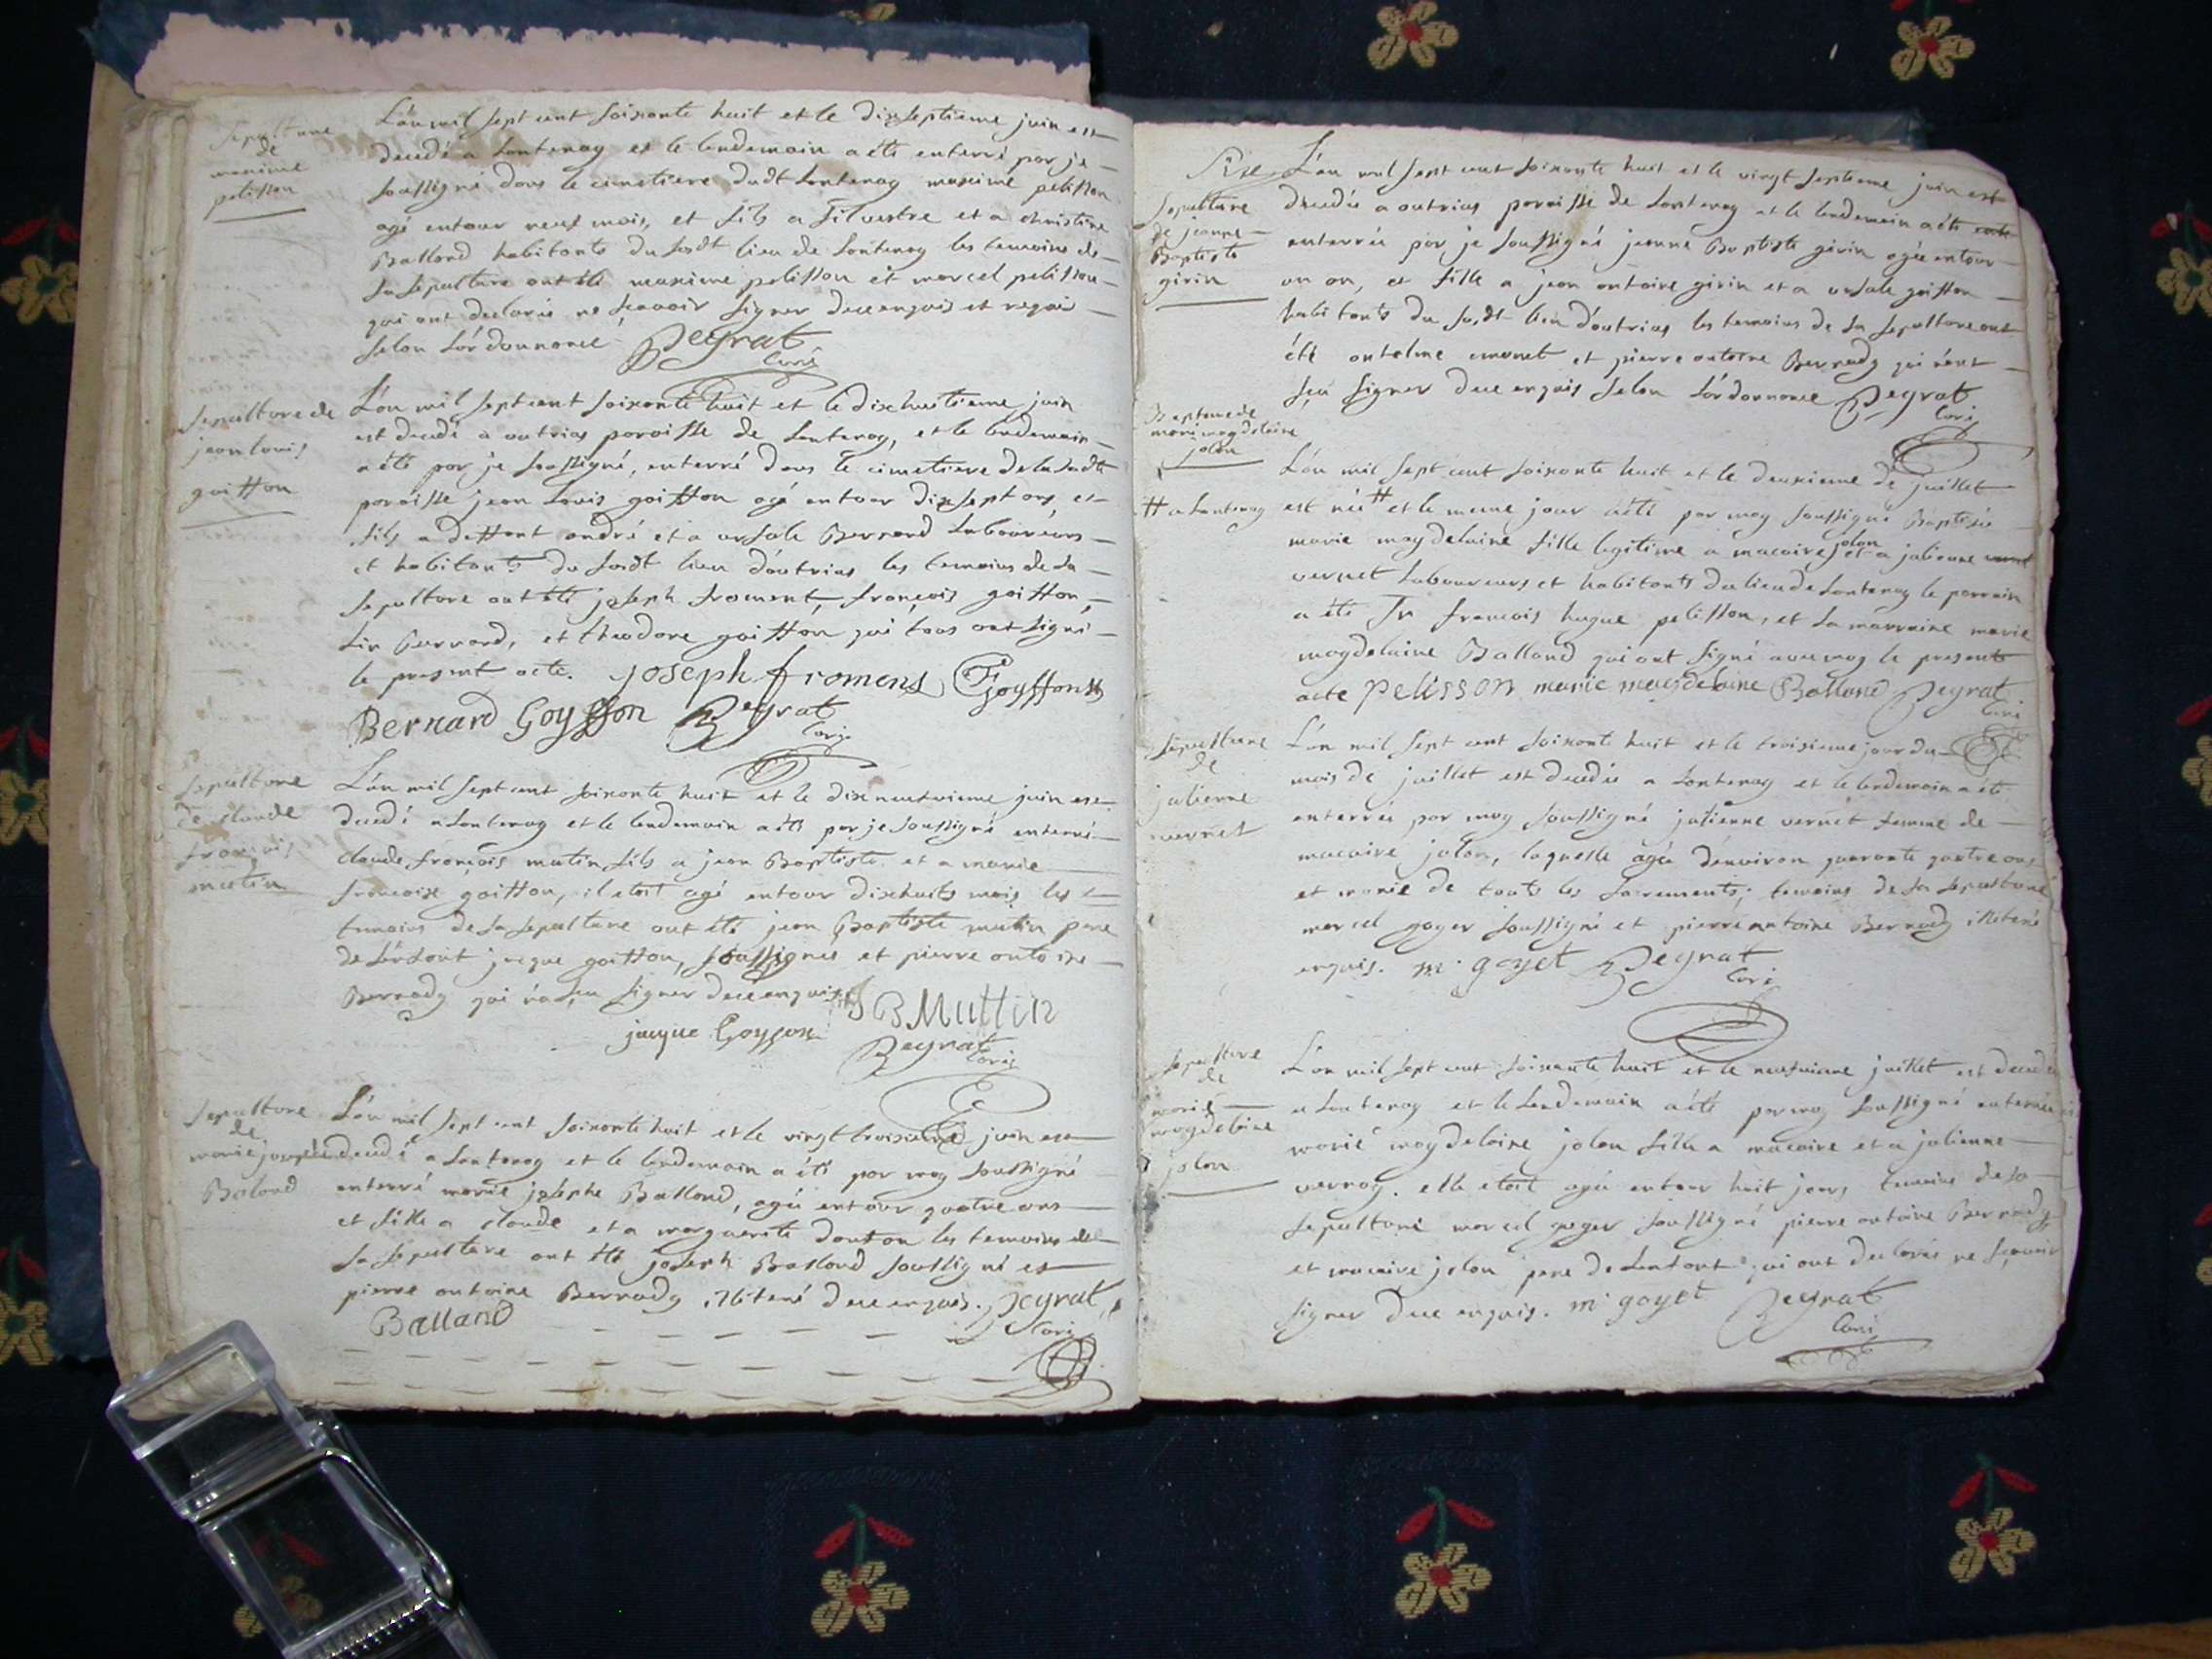 Sepulture
de
maxime
pelisson
L'an mil sept cent soixante huit et le dixseptieme juin est
decedé a Lantenay et le lendemain a été enterré par je
soussigné dans le cimetiere dudt Lantenay maxime pelisson
agé entour neuf mois, et fils a silvestre et a christine
Balland habitants du susdt lieu de Lantenay les temoins de
sa sepulture ont été maxime pelisson et marcel pelisson
qui ont declarés ne sçavoir signer de ce enquis et requis
selon l'ordonnance Peyrat
Curé
Sepulture de
jean louis
goiffon
L'an mil sept cent soixante huit et le dixhuitieme juin
est decedé a outrias paroisse de Lantenay, et le lendemain
a été par je soussigné, enterré dans le cimetiere de la susdt
paroisse jean Louis goiffon agé entour dixsept ans et
fils a deffunt andré et a ursule Bernard Laboureurs
et habitants du susdt lieu d'outrias les temoins de sa
sepulture ont été joseph froment, françois goiffon,
Bernard, et theodore goiffon qui tous ont signé
le present acte. joseph fromens goyffon
Bernard Goyffon Peyrat
Curé
Sepulture
de claude
françois
mutin
L'an mil sept cent soixante huit et le dix neufvieme juin est
decedé a Lantenay et le lendemain a été par je soussigné enterré
claude françois mutin fils a jean Baptiste et a marie
francoise goiffon, il etoit agé entour dixhuits mois les
temoins de sa sepulture ont été jean Baptiste mutin pere
de l'enfant jacque goiffon, soussignes et pierre antoine
Bernady qui n'a sçu signer de ce enquis JB Muttin
jacque Goyffon
Peyrat
Curé
Sepulture
de
marie josephe
Baland
L'an mil sept cent soixante huit et le vingt troisieme juin est
decedé a Lantenay et le lendemain a été par moy soussigné
enterré marie josephe Balland, agée entour quatre ans
et fille a claude et a marguerite les temoins de
sa sepulture ont été joseph Balland soussigné et
pierre antoine Bernady illiteré de ce enquis. Peyrat
Balland
Curé
Sepulture
de jeanne
Baptiste
girin
L'an mil sept cent soixante huit et le vingt septieme juin est
decedée a outrias paroisse de Lantenay et le lendemain a été
enterrée par je soussigné jeanne Baptiste girin agée entour
un an, et fille a jean antoine girin et a ursule goiffon
habitants du susdt lieu d'outrias les temoins de sa sepulture ont
été antelme emonet et pierre antoine Bernady qui n'ont
sçu signer de ce enquis selon l'ordonnance Peyrat
Curé
Bapteme de
marie magdelaine
jolon
L'an mil sept cent soixante huit et le deuxieme de juillet
# a Lantenay
est née # et le meme jour a été par moy soussigné Baptisée
marie magdelaine fille legitime a macaire jolon et a julienne
vernet Laboureurs et habitants du lieu de Lantenay le parrain
a été Sr francois hugue pelisson, et la marraine marie
magdelaine Balland qui ont signé avec moy le present
acte pelisson marie magdelaine Balland Peyrat
Curé
Sepulture
de
julienne
vernet
L'an mil sept cent soixante huit et le troisieme jour du
mois de juillet est decedée a Lantenay et le lendemain a été
enterrée par moy soussigné julienne vernet femme de
macaire jolon, laquelle agée d'environ quarante quatre ans
et munie de touts les sacrements; temoins de sa sepulture
marcel goyet soussigné et pierre antoine Bernady illiteré
enquis. m. goyet Peyrat
Curé
Sepulture
de
marie
magdelaine
jolon
L'an mil sept cent soixante huit et le neufvieme juillet est decedée
a Lantenay et le lendemain a été par moy soussigné enterrée
marie magdelaine jolon fille a macaire et a julienne
vernay. elle etoit agée entour huit jours temoins de sa
sepulture marcel goyet soussigné pierre antoine Bernady
et macaire jolon pere de l'enfant qui ont declarés ne sçavoir
signer de ce enquis. m. goyet Peyrat
Curé